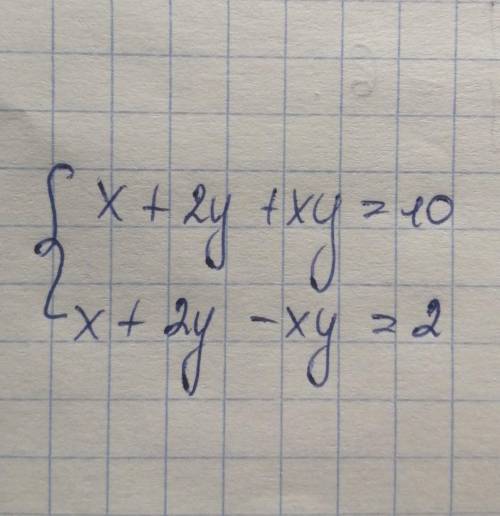 x + 2y + xy = 10
x + 2y - xy = 2